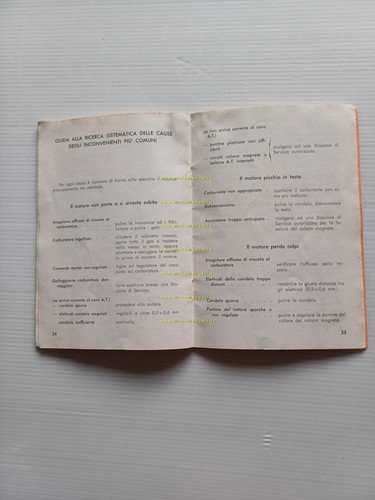 GUIDA ALLA RICERCA SISTEMATICA DELLE CAUSE
DEGLI INCONVENIENTI PIU' COMUNI
Per ogni causa è riportato di fianco sullo specchio il
provvedimento da adottare.
Il motore non parte o si arresta subito
Irregolare afflusso di miscela al
carburatore
pulire la tubazione ed i filtri.
Carburatore ingolfato
chiudere il rubinetto miscela,
aprire tutto il gas e insistere
nella messa in moto, oppure
smontare e asciugare la candela
Comando starter non regolato
Agire sul registro del cavo
posto sul carburatore.
Galleggiante carburatore dan-
neggiato.
farlo sostituire presso una Sta-
zione di Servizio.
(se arriva corrente al cavo A.T.)
— candela sporca
procedere alla pulizia.
— elettrodi candela irregolari
regolarli a circa 0,5÷0,6 mm
— candela inefficiente
sostituirla.
24
(se non arriva corrente al cavo
A.T.)
— puntine platinate non effi-
cienti
— circuiti volano magnete o
bobina A.T. interrotti
rivolgersi ad una Stazione di
Servizio autorizzata.
Il motore picchia in testa
Carburante non appropriato
sostituire il carburante con al-
tro più indicato.
Autoaccensione
pulire la candela, disincrostare
la testa
Accensione troppo anticipata
rivolgersi ad una Stazione di
Servizio autorizzata per la fa-
satura del volano magnete.
Il motore perde colpi
Irregolare afflusso di miscela al
carburatore
verificare l'afflusso della mi-
scela.
Elettrodi della candela troppo
distanti
ristabilire la giusta distanza fra
gli elettrodi (0,5÷0,6 mm).
Candela sporca
pulire la candela.
Puntine del ruttore sporche o
non regolate
pulire e regolare le puntine del
ruttore del volano magnete.
25